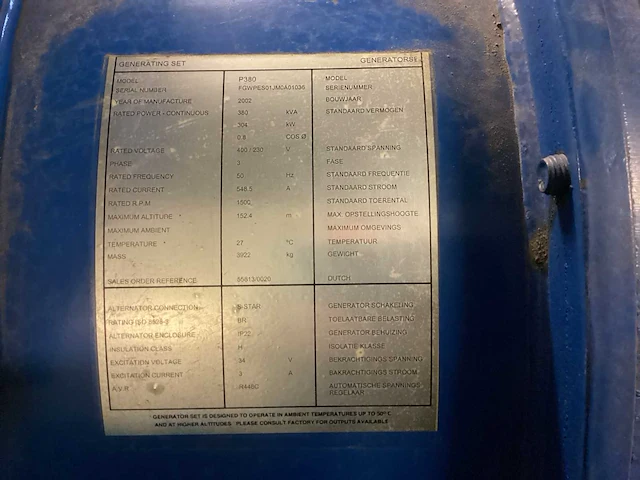 GENERATING SET GENERATORSET
MODEL P380 MODEL
SERIAL NUMBER FGWPES01JMCA01036 SERIENUMMER
YEAR OF MANUFACTURE 2002 BOUWJAAR
RATED POWER - CONTINUOUS 380 kVA STANDAARD VERMOGEN
304 kW
0.8 COS Ø
RATED VOLTAGE 400 / 230 V STANDAARD SPANNING
PHASE 3 FASE
RATED FREQUENCY 50 Hz STANDAARD FREQUENTIE
RATED CURRENT 548.5 A STANDAARD STROOM
RATED R.P.M 1500 STANDAARD TOERENTAL
MAXIMUM ALTITUDE * 152.4 m MAX. OPSTELLINGSHOOGTE
MAXIMUM AMBIENT MAXIMUM OMGEVINGS
TEMPERATURE * 27 °C TEMPERATUUR
MASS 3922 kg GEWICHT
SALES ORDER REFERENCE 85613/0020 DUTCH
ALTERNATOR CONNECTION S-STAR GENERATOR SCHAKELING
RATING ISO 8528-3 BR TOELAATBARE BELASTING
ALTERNATOR ENCLOSURE IP22 GENERATOR BEHUIZING
INSULATION CLASS H ISOLATIE KLASSE
EXCITATION VOLTAGE 34 V BEKRACHTIGINGS SPANNING
EXCITATION CURRENT 3 A BAKRACHTIGINGS STROOM
A.V.R. R448C AUTOMATISCHE SPANNINGS
REGELAAR
GENERATOR SET IS DESIGNED TO OPERATE IN AMBIENT TEMPERATURES UP TO 50° C
AND AT HIGHER ALTITUDES. PLEASE CONSULT FACTORY FOR OUTPUTS AVAILABLE